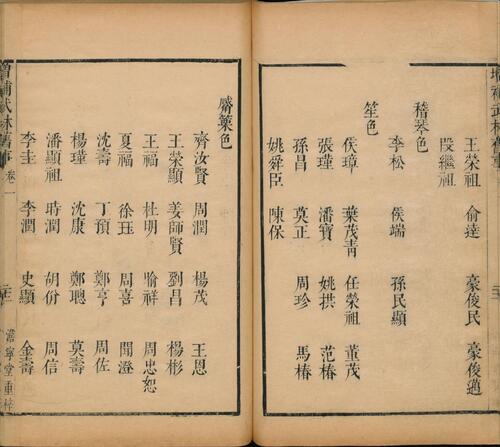 王榮祖 俞達 豪俊民 豪俊邁
段繼祖
稽琴色
李松 侯端 孫民顯
笙色
侯璋 葉茂青 任榮祖 董茂
張瑾 潘寶 姚拱 范椿
孫昌 莫正 周珍 馬椿
姚舜臣 陳保
觱篥色
齊汝賢 周潤 楊茂 王恩
王榮顯 姜師賢 劉昌 楊彬
王福 杜明 喻祥 周忠恕
夏福 徐珏 周喜 聞澄
沈壽 丁預 鄭亨 周佐
楊瑾 沈康 鄭聰 莫壽
潘顯祖 時潤 胡份 周信
李圭 李潤 史顯 金壽
增補武林舊事 卷一